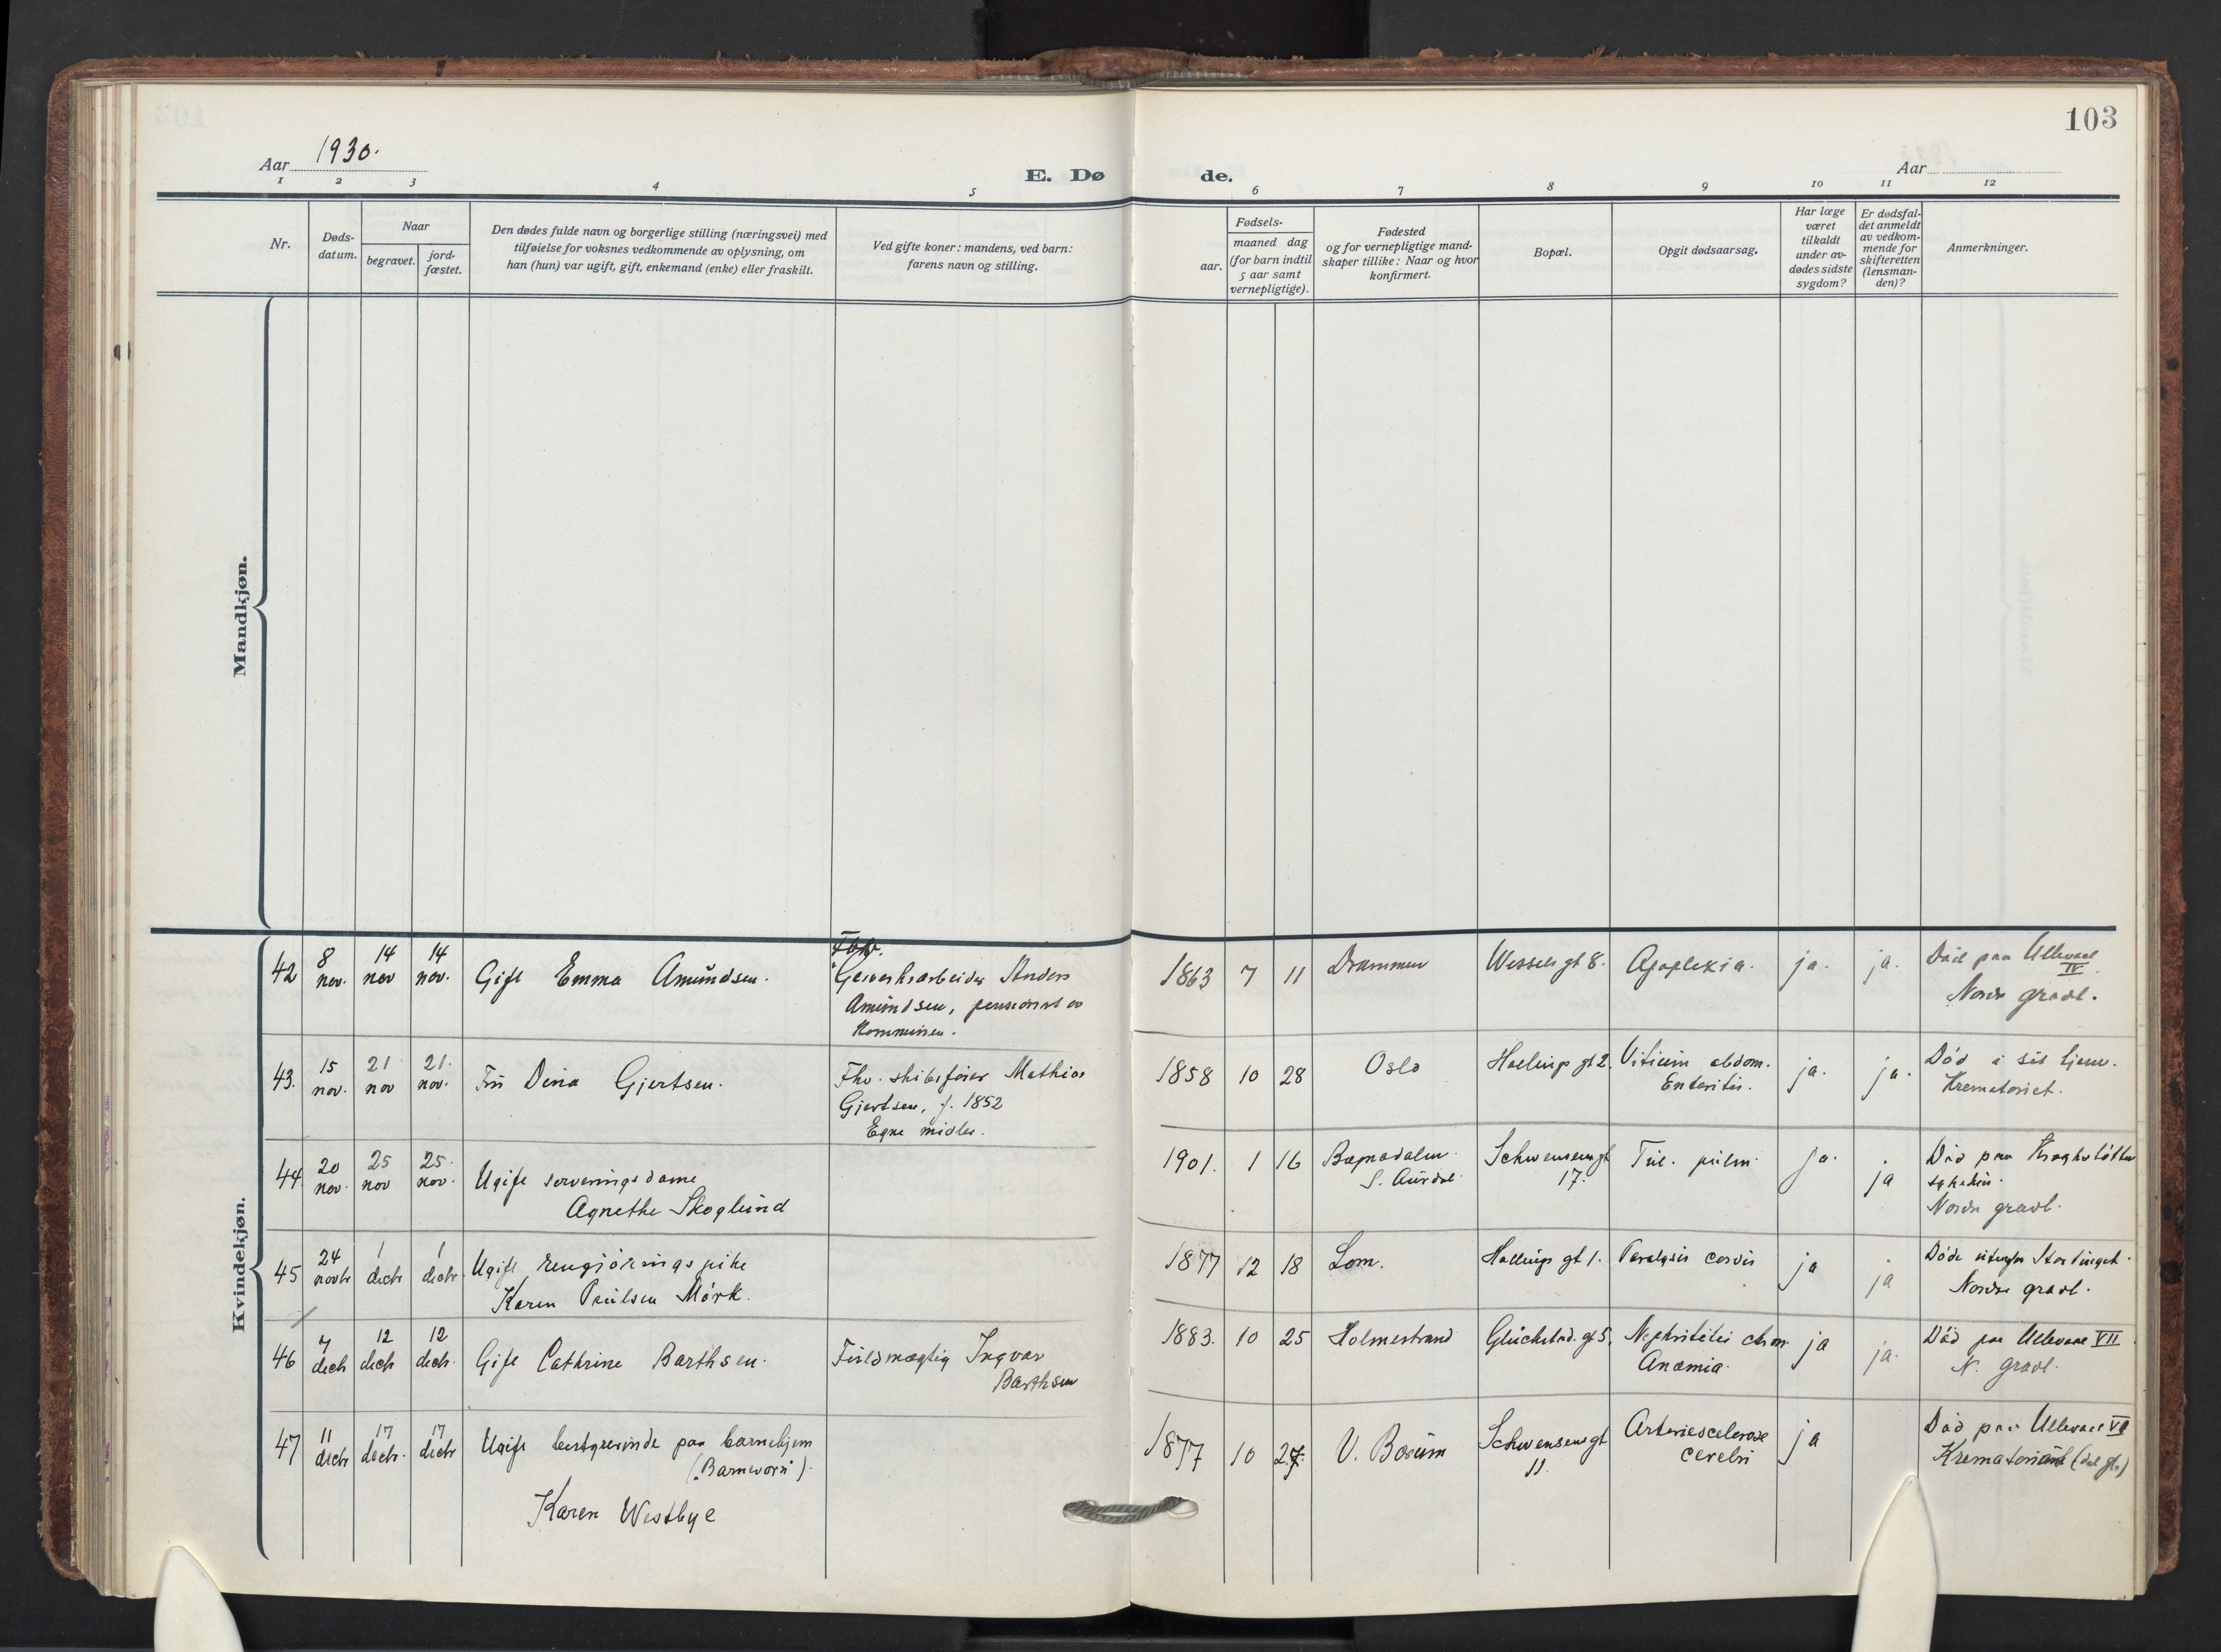 103
Aar 1930.
E. Dø de.
Aar
1 2 3 4 5 6 7 8 9 10 11 12
Nr.
Døds-
datum.
Naar
begravet.
jord-
fæstet.
Den dødes fulde navn og borgerlige stilling (næringsvei) med
tilføielse for voksnes vedkommende av oplysning, om
han (hun) var ugift, gift, enkemand (enke) eller fraskilt.
Ved gifte koner: mandens, ved barn:
farens navn og stilling.
Fødsels-
aar.
maaned dag
(for barn indtil
5 aar samt
vernepligtige).
Fødested
og for vernepligtige mand-
skaper tillike: Naar og hvor
konfirmert.
Bopæl.
Opgit dødsaarsag.
Har læge
været
tilkaldt
under av-
dødes sidste
sygdom?
Er dødsfal-
det anmeldt
av vedkom-
mende for
skifteretten
(lensman-
den)?
Anmerkninger.
Mandkjøn.
Kvindekjøn.
42
8
nov.
14
nov
14
nov.
Gift Emma Amundsen.
Anders
Amundsen, pensionist av
Kommunen.
1863 7 11
Drammen
Wessels gt 8.
Apoplexia.
ja.
ja.
Død paa Ullevaal
IV
Nordre gravl.
43.
15
nov.
21
nov
21.
nov.
Fru Dina Gjertsen.
Fhv. skibsfører Mathias
Gjertsen, f. 1852
Egne midler.
1858 10 28
Oslo
gt 2.
Vitium abdom.
Enteritis.
ja.
ja.
Død i sit hjem.
Krematoriet.
44
20
nov.
25
nov
25.
nov.
Ugift serveringsdame
Agnethe Skoglund
1901. 1 16
S. Aurdal
Schwensens gt
17.
Tub. pulm.
ja.
ja
Død paa Krogstøtten
sykehus.
Nordre gravl.
45
24
novbr
1
decbr
1
decbr.
Ugift rengjøringspike
Karen Paulsen Mörk.
1877 12 18
Lom.
gt 1.
Paralysis cordis
ja
ja
Døde utenfor Stortinget.
Nordre gravl.
46
7
decbr
12
decbr
12
decbr.
Gift Cathrine Barthsen.
Fuldmægtig Ingvar
Barthsen
1883. 10 25
Holmestrand
Glückstad. gt 5.
chron.
Anæmia.
ja
ja.
Død paa Ullevaal VII.
N. gravl.
47
11
decbr
17
decbr.
17
decbr
Ugift bestyrerinde paa barnehjem
("Barnevorn").
Karen Westbye
1877 10 27.
V. Bærum
Schwensens gt
11.
Arteriesclerose
cerebri
ja
Død paa Ullevaal
Krematoriet